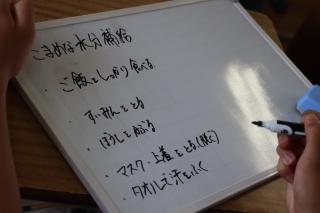 こまめな水分補給
・ご飯をしっかり食べる
・すいみんをとる
・ぼうしをかぶる
・マスク・上着をとる(脱ぐ)
・タオルで汗をふく